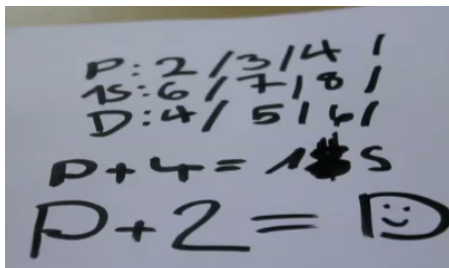 P: 2 / 3 / 4 /
1S: 6 / 7 / 8 /
D: 4 / 5 / 6 /
P + 4 = 1 S
P + 2 = D